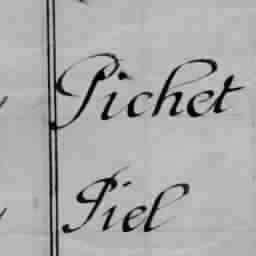 Pichet
Piel